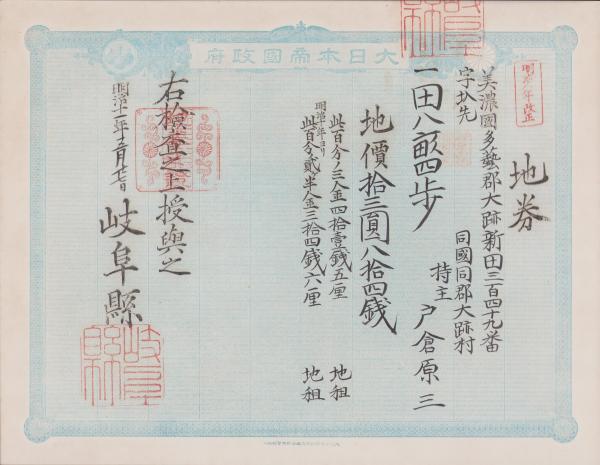 大日本帝國政府
地券
美濃國多藝郡大跡新田三百四十九番
字圦先
同國同郡大跡村
持主 戸倉原三
一田八畝四歩
地價拾三圓八拾四錢
此百分ノ三金四拾壹錢五厘 地租
明治十年ヨリ
此百分貳半金三拾四錢六厘 地租
右檢査之上授與之
明治十一年五月
岐阜縣